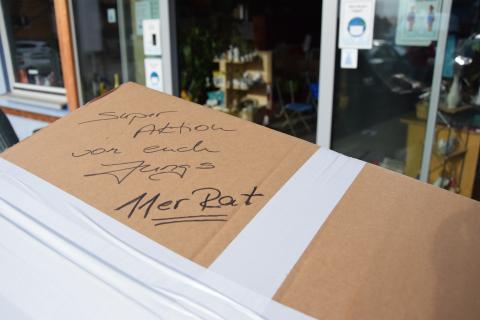 Super
Aktion
von euch
Jungs
11er Rat